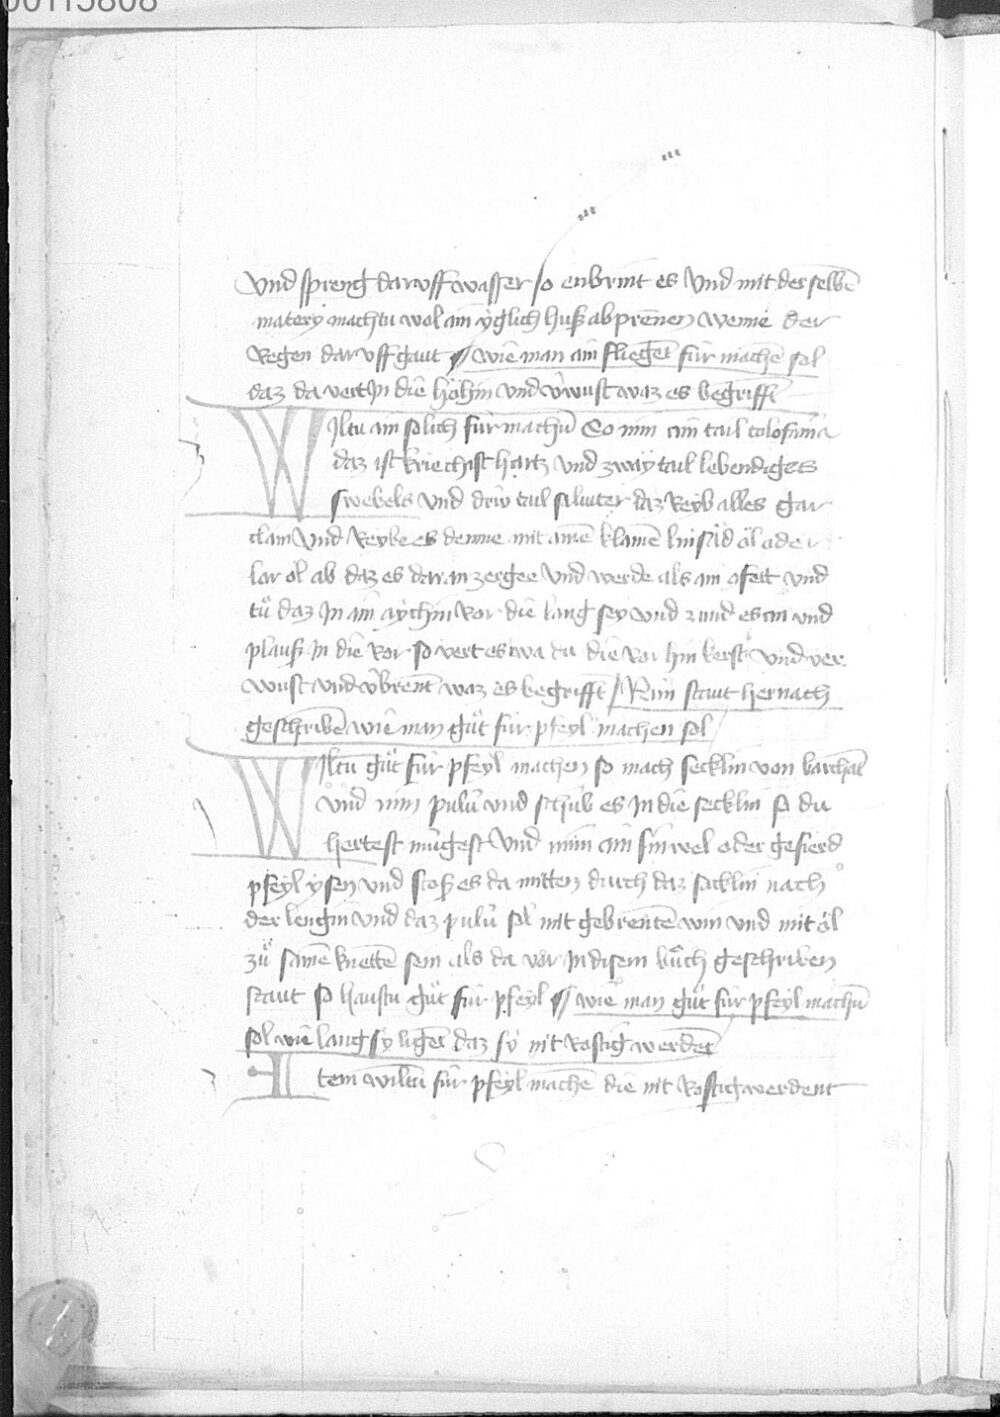 00115808
Vnd spreng daruff wasser so enbrint es Vnd mit der selbē
matery machtu wol ain yglich huß abprēnen wenne der
Regen daruff gaut wie man ain fliegēt für machē sol
daz da vert In die höhin vnd v̄wust waz es begrifft
Wiltu ain solich für machn̄ So nim ain tail colofonia
daz ist kriechist hartz vnd zway tail lebendiges
swebels vnd drw tail saluiter daz Reyb alles gar
clain Vnd Reybe es denne mit ainē klainē linsad öl oder
lor öl ab daz es dar an zergee Vnd werde als ain afect vnd
tů daz In ain aychin Ror die lang sey vnd zund es an vnd
plauß In die Ror so vert es wa du die Ror hin kerst vnd ver
wust vnd v̄brent waz es begrifft Nun staut hernach
geschribē wie man gůt für pfeyl machen sol
Wiltu gůt für pfeyl machen so mach secklin von barchāt
vnd nim pulū vnd schüb es In die secklin so du
hertest mügest Vnd nim ain sinwel oder gefierd
pfeyl ysen vnd stoß es da mitten durch daz secklin nach
der lengin vnd daz pulū sol mit gebrentē win vnd mit öl
zů samē knettē sein als da vor In disem bůch geschriben
staut so haustu gůt für pfeyl wie man gůt für pfeyl machn̄
sol wie lang sy ligēt daz sy nit Rostig werdēt
Item wiltu für pfeyl machē die nit Rostig werdent